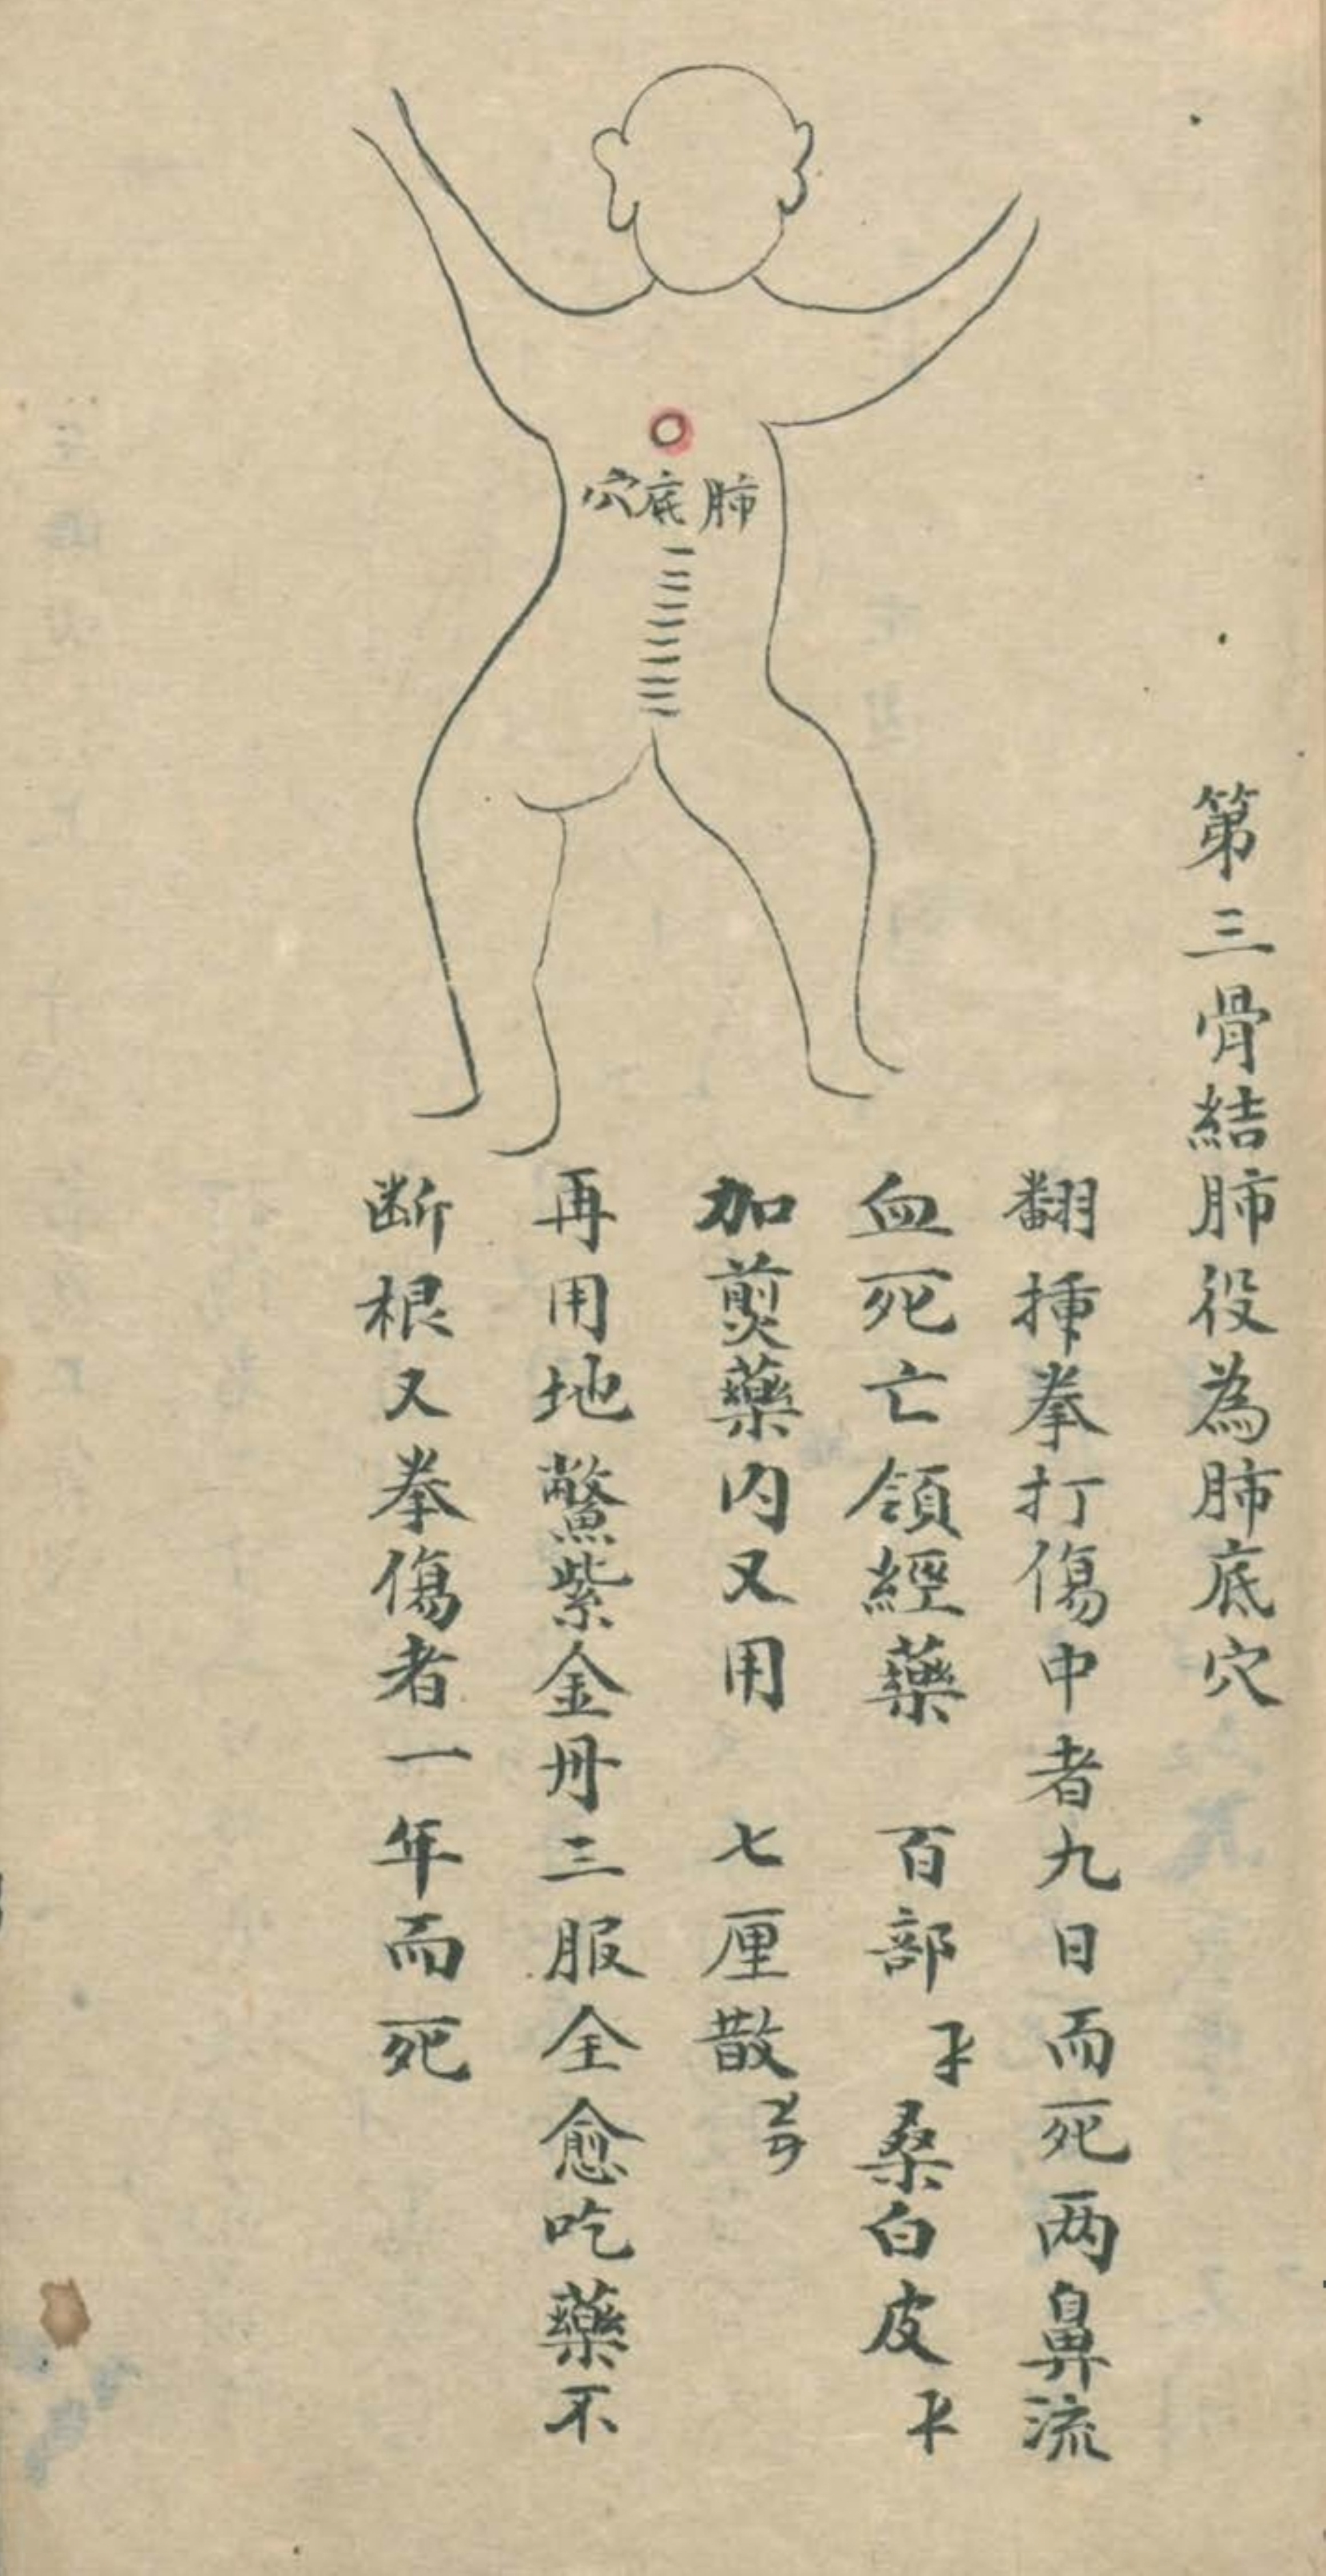 第三骨結肺役為肺底穴
翻捶拳打傷中者九日而死两鼻流
血死亡領經藥 百部 桑白皮
加煎藥内又用 七厘散
再用地鱉紫金丹三服全愈吃藥不
断根又拳傷者一年而死
肺底穴